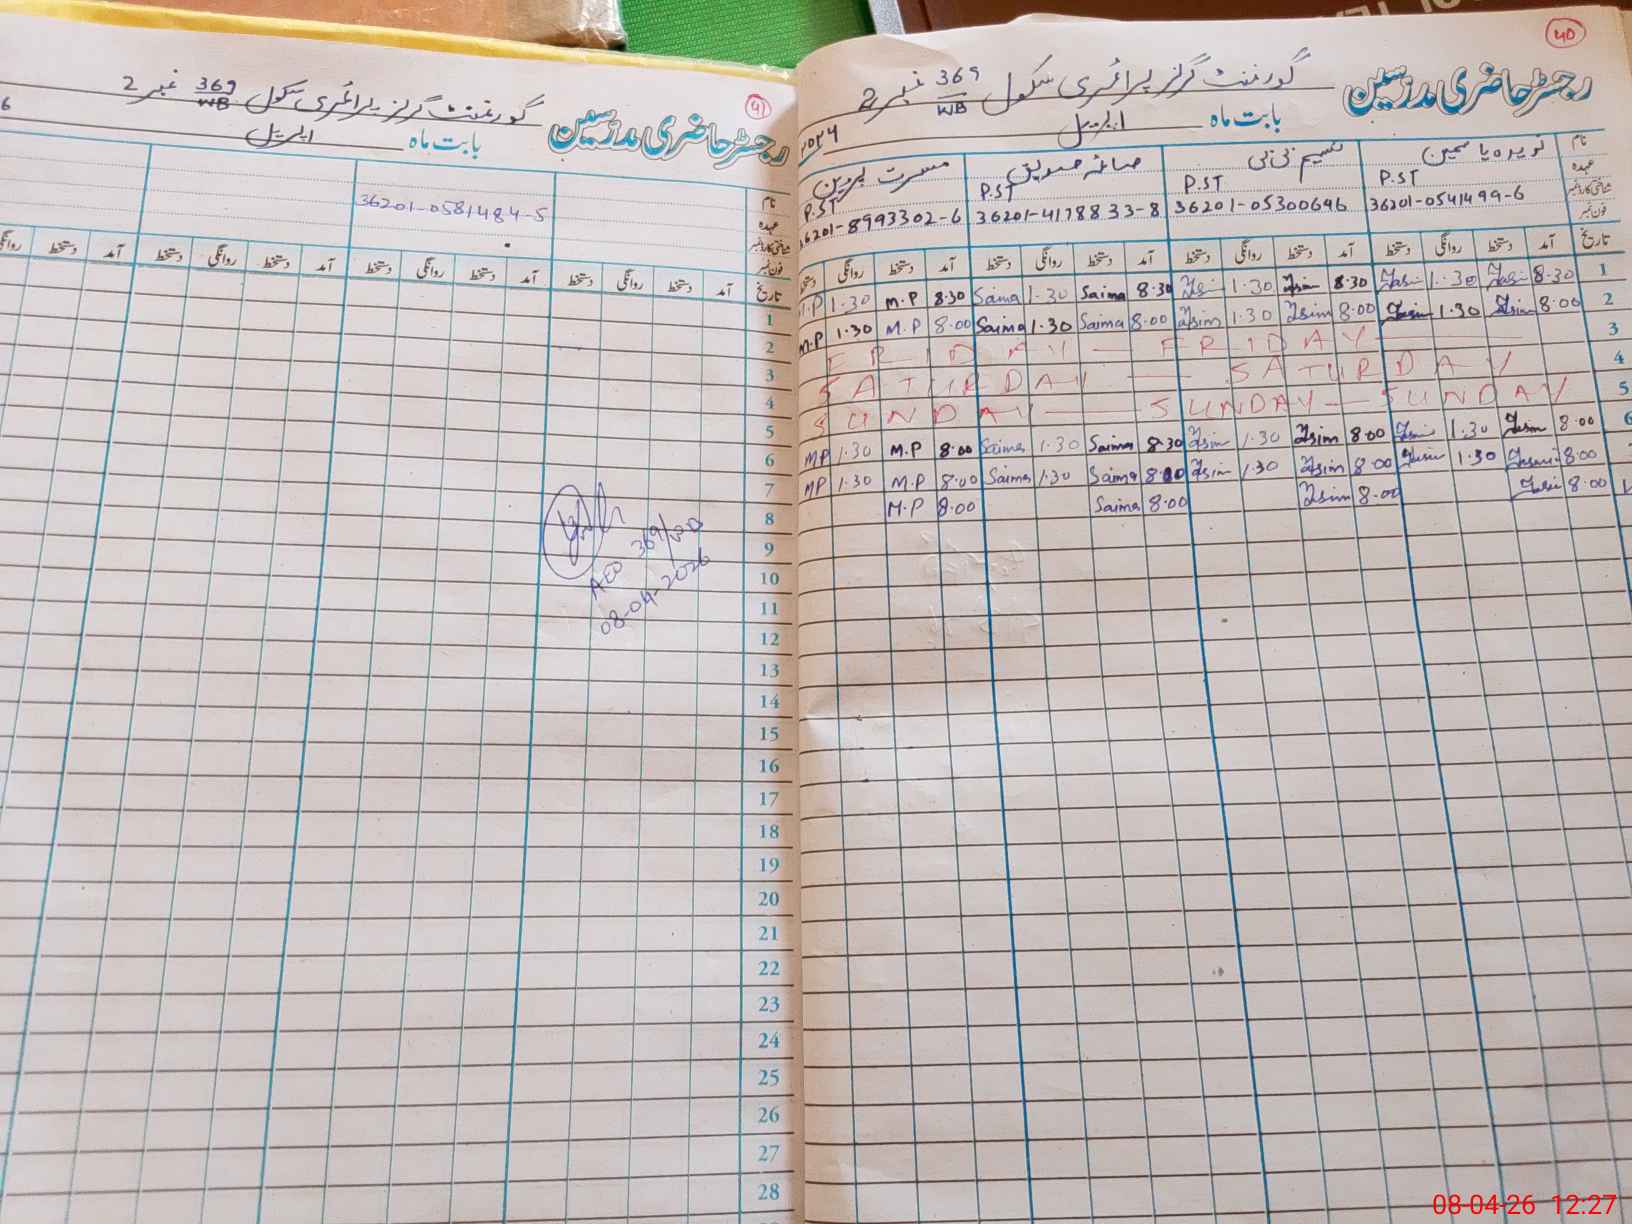 40
رجسٹر حاضری مدرسین گورنمنٹ گرلز پرائمری سکول 369/WB نمبر 2
بابت ماہ اپریل
نام نویدہ یاسمین نسیم بی بی صائمہ صدیق مسرت پروین
عہدہ P.ST P.ST P.ST P.ST
شناختی کارڈ نمبر 36201-0541499-6 36201-05300646 36201-4178833-8 36201-8993302-6
فون نمبر
تاریخ آمد دستخط روانگی دستخط آمد دستخط روانگی دستخط آمد دستخط روانگی دستخط آمد دستخط روانگی
1 8.30 1.30 8.30 1.30 8.30 Saima 1.30 Saima 8.30 M.P 1.30 M.P
2 8.00 1.30 8.00 1.30 8.00 Saima 1.30 Saima 8.00 M.P 1.30 M.P
3 FRIDAY FRIDAY
4 SATURDAY SATURDAY
5 SUNDAY SUNDAY SUNDAY
6 8.00 1.30 8.00 1.30 8.30 Saima 1.30 Saima 8.00 M.P 1.30 MP
8.00 1.30 8.00 1.30 8.00 Saima 1.30 Saima 8.00 M.P 1.30 MP
8.00 8.00 8.00 Saima 8.00 M.P
41
رجسٹر حاضری مدرسین گورنمنٹ گرلز پرائمری سکول 369/WB نمبر 2
بابت ماہ اپریل 6
نام
عہدہ 36201-0581484-5
شناختی کارڈ نمبر
فون نمبر
تاریخ آمد دستخط روانگی دستخط آمد دستخط روانگی دستخط آمد دستخط روانگی دستخط آمد دستخط روانگی
1
2
3
4
5
6
7
8
9
10
11
12
13
14
15
16
17
18
19
20
21
22
23
24
25
26
27
28
AEO 369/WB
08-04-2026
08-04-26 12:27